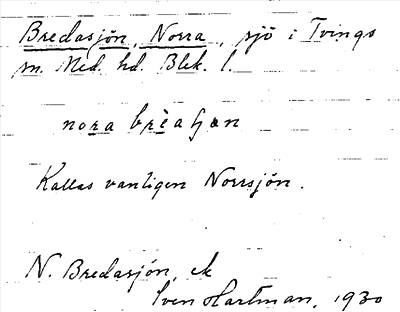 Bredasjön, Norra, sjö i Tvings
sn. Med. hd. Blek. l.
nora brèahæn
Kallas vanligen Norrsjön.
N. Bredasjön, ek
Sven Hartman, 1930